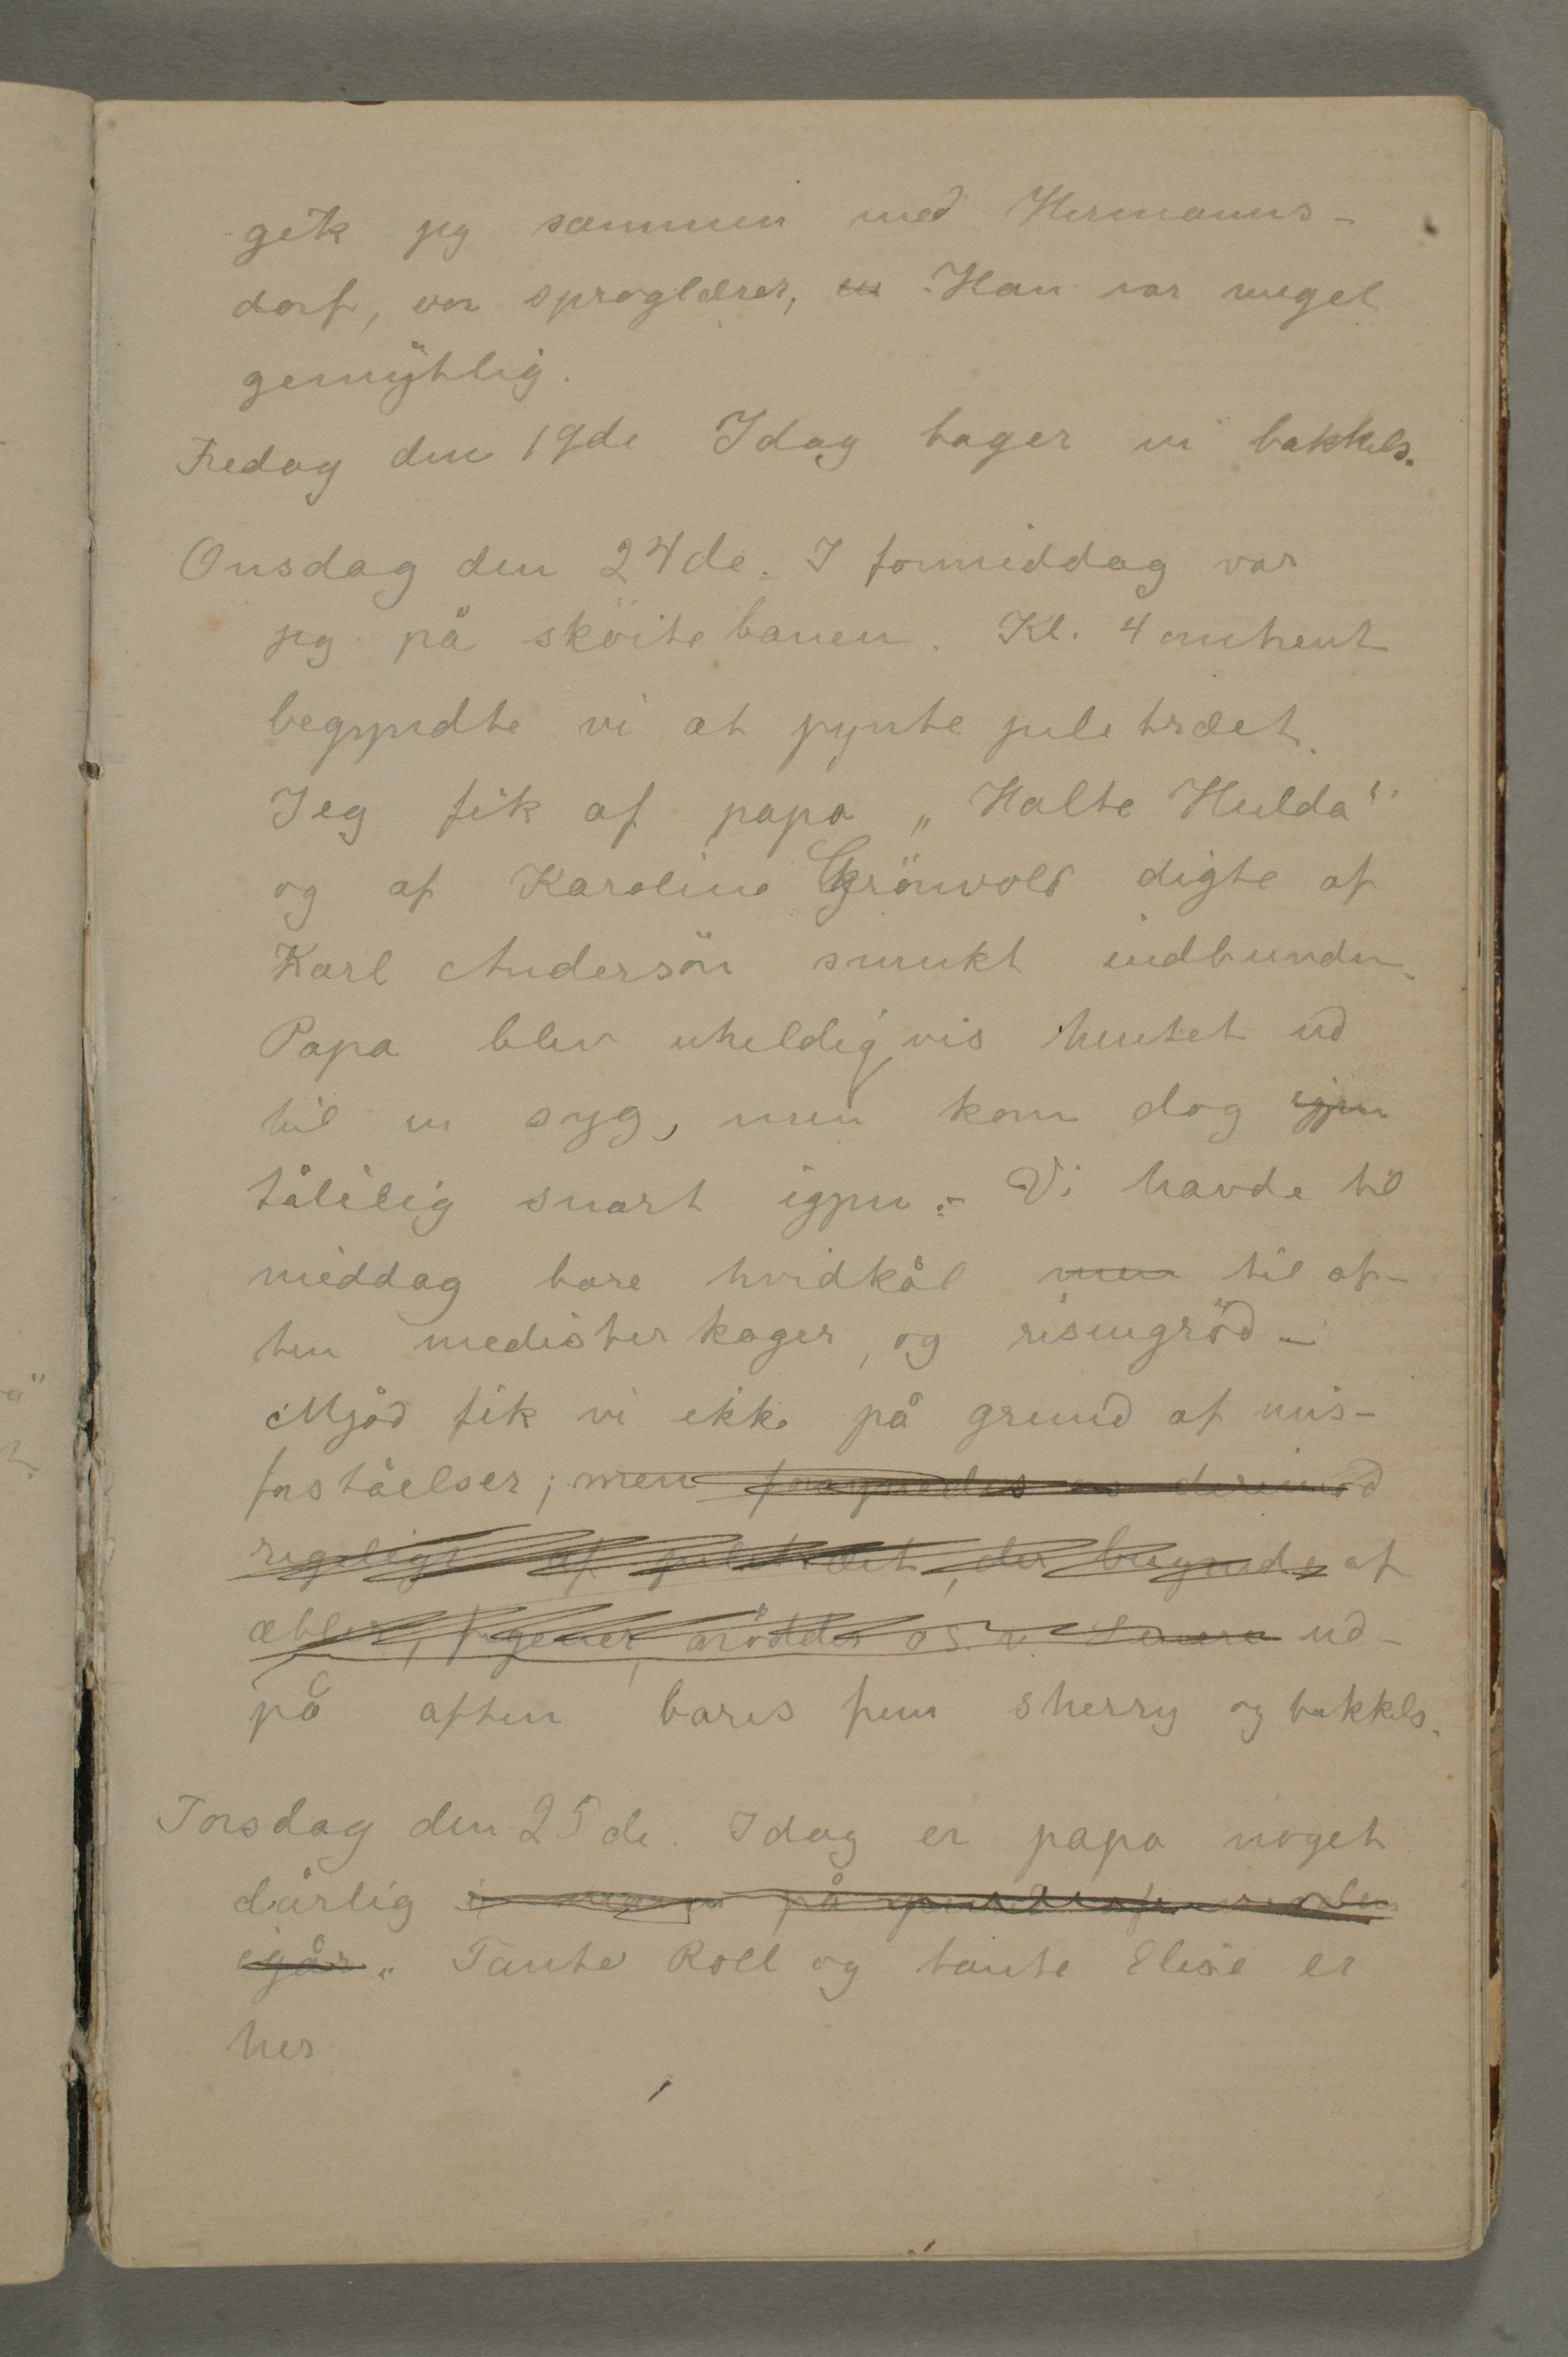 gik jeg sammen med Hermanns-
dorf, vor sproglærer, en Han var meget
gemytlig.
Fredag den 19de Idag bager vi bakkels.
Onsdag den 24de. I formiddag var
jeg på sköitebanen. Kl. 4 omtrent
begyndte vi at pynte juletræet.
Jeg fik af papa „Halte Hulda"
og af Karoline Grönvold digte af
Karl Andersön smukt indbunden.
Papa blev uheldigvis hentet ud
til en syg, men kom dog igjen
tålelig snart igjen. - Vi havde til
middag bare hvidkål men til af-
ten medisterkager, og risengröd -
Mjød fik vi ikke på grund af mis-
forståelser; men forsynedes os derimod
rigeligt af juletræet, der bugnede af
æbler, figener, nödder o s. v. Senere ud-
på aften bares frem sherry og bakkels.
Torsdag den 25de. Idag er papa noget
dårlig i på
igår. Tante Roll og tante Elise er
her